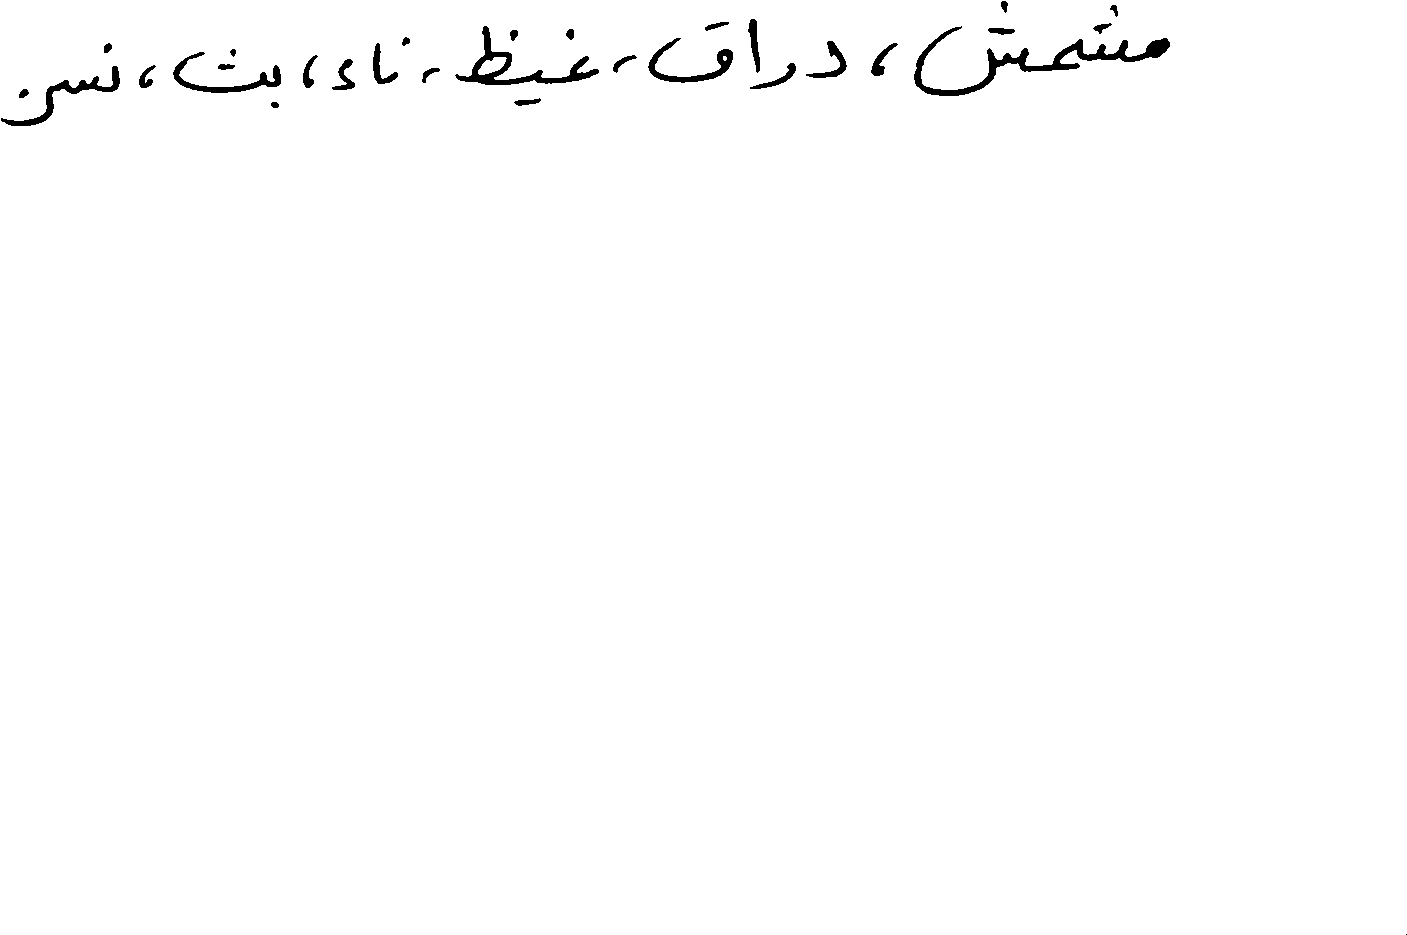 مشمش، دراق، غيظ، ناء، بث، نسر